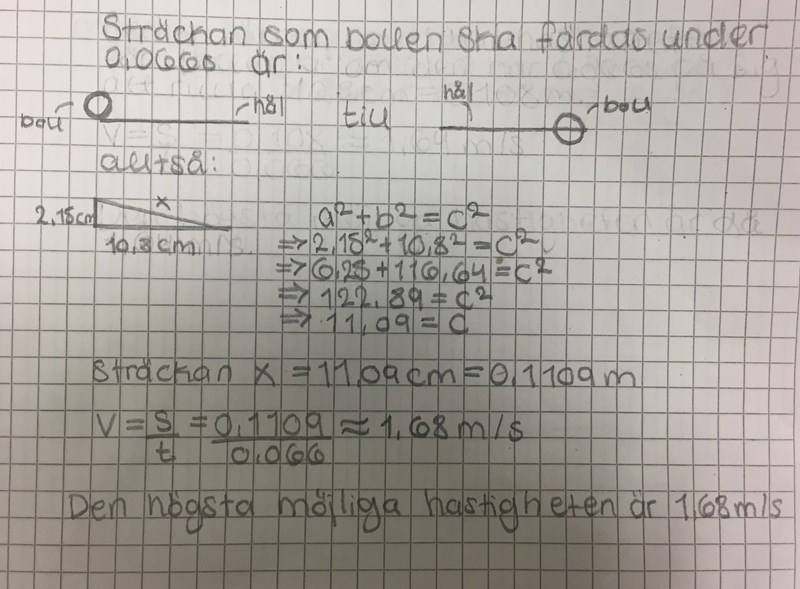 Sträckan som bollen ska färdas under
0,066s är:
boll hål till hål boll
alltså:
2,15cm x
10,8cm
a² + b² = c²
=> 2,15² + 10,8² = c²
=> 6,25 + 116,64 = c²
=> 122,89 = c²
=> 11,09 = c
Sträckan x = 11,09 cm = 0,1109 m
V = s/t = 0,1109/0,066 ≈ 1,68 m/s
Den högsta möjliga hastigheten är 1,68 m/s